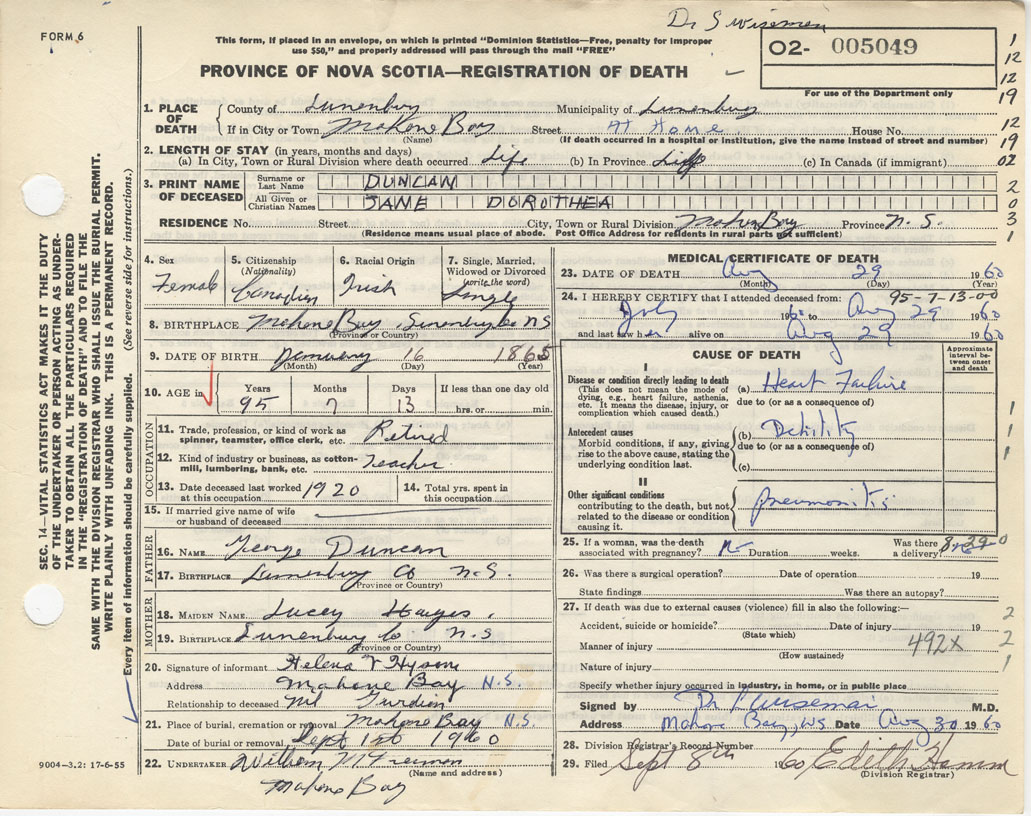 Dr S Wiseman
FORM 6
This form, if placed in an envelope, on which is printed "Dominion Statistics—Free, penalty for improper
use $50," and properly addressed will pass through the mail "FREE"
O2- 005049
For use of the Department only
PROVINCE OF NOVA SCOTIA—REGISTRATION OF DEATH
1. PLACE OF DEATH County of Lunenburg Municipality of Lunenburg
If in City or Town Mahone Bay Street At Home House No.
(Name) (If death occurred in a hospital or institution, give the name instead of street and number)
2. LENGTH OF STAY (in years, months and days)
(a) In City, Town or Rural Division where death occurred Life (b) In Province Life (c) In Canada (if immigrant)
3. PRINT NAME OF DECEASED Surname or Last Name DUNCAN
All Given or Christian Names JANE DOROTHEA
RESIDENCE No. Street City, Town or Rural Division Mahone Bay Province N. S.
(Residence means usual place of abode. Post Office Address for residents in rural parts not sufficient)
4. Sex Female
5. Citizenship (Nationality) Canadian
6. Racial Origin Irish
7. Single, Married, Widowed or Divorced (write the word) Single
8. BIRTHPLACE Mahone Bay Lunenburg Co NS
(Province or Country)
9. DATE OF BIRTH January 16 1865
(Month) (Day) (Year)
10. AGE in Years 95 Months 7 Days 13 If less than one day old hrs. or min.
OCCUPATION
11. Trade, profession, or kind of work as spinner, teamster, office clerk, etc. Retired
12. Kind of industry or business, as cotton-mill, lumbering, bank, etc. Teacher
13. Date deceased last worked at this occupation 1920
14. Total yrs. spent in this occupation
15. If married give name of wife or husband of deceased
FATHER
16. NAME George Duncan
17. BIRTHPLACE Lunenburg Co N.S.
(Province or Country)
MOTHER
18. MAIDEN NAME Lucey Hayes
19. BIRTHPLACE Lunenburg Co N.S
(Province or Country)
20. Signature of informant Helena V Hyson
Address Mahone Bay N.S.
Relationship to deceased nil
21. Place of burial, cremation or removal Mahone Bay N.S.
Date of burial or removal Sept 1st 1960
22. UNDERTAKER William
(Name and address)
Mahone Bay
MEDICAL CERTIFICATE OF DEATH
23. DATE OF DEATH Aug 29 1960
(Month) (Day) (Year)
95-7-13-00
24. I HEREBY CERTIFY that I attended deceased from:
July 1960 to Aug 29 1960
and last saw her alive on Aug 29 1960
CAUSE OF DEATH
Approximate interval between onset and death
I
Disease or condition directly leading to death
(This does not mean the mode of dying, e.g., heart failure, asthenia, etc. It means the disease, injury, or complication which caused death.)
(a) Heart Failure
due to (or as a consequence of)
Antecedent causes
Morbid conditions, if any, giving rise to the above cause, stating the underlying condition last.
(b) Debility
due to (or as a consequence of)
(c)
II
Other significant conditions
contributing to the death, but not related to the disease or condition causing it.
pneumonitis
25. If a woman, was the death associated with pregnancy? No Duration weeks. Was there a delivery?
26. Was there a surgical operation? Date of operation 19
State findings Was there an autopsy?
27. If death was due to external causes (violence) fill in also the following:—
Accident, suicide or homicide? Date of injury 19
(State which)
Manner of injury 492X
(How sustained)
Nature of injury
Specify whether injury occurred in industry, in home, or in public place
Signed by Dr S Wiseman M.D.
Address Mahone Bay, NS Date Aug 30 1960
28. Division Registrar's Record Number
29. Filed Sept 8th 1960 Edith Hamm
(Division Registrar)
SEC. 14—VITAL STATISTICS ACT MAKES IT THE DUTY
OF THE UNDERTAKER OR PERSON ACTING AS UNDER-
TAKER TO OBTAIN ALL THE PARTICULARS REQUIRED
IN THE "REGISTRATION OF DEATH" AND TO FILE THE
SAME WITH THE DIVISION REGISTRAR WHO SHALL ISSUE THE BURIAL PERMIT.
WRITE PLAINLY WITH UNFADING INK. THIS IS A PERMANENT RECORD.
Every item of information should be carefully supplied. (See reverse side for instructions.)
9004-3.2: 17-6-55
1
12
12
19
12
19
02
2
0
3
1
1
1
1
2
2
1